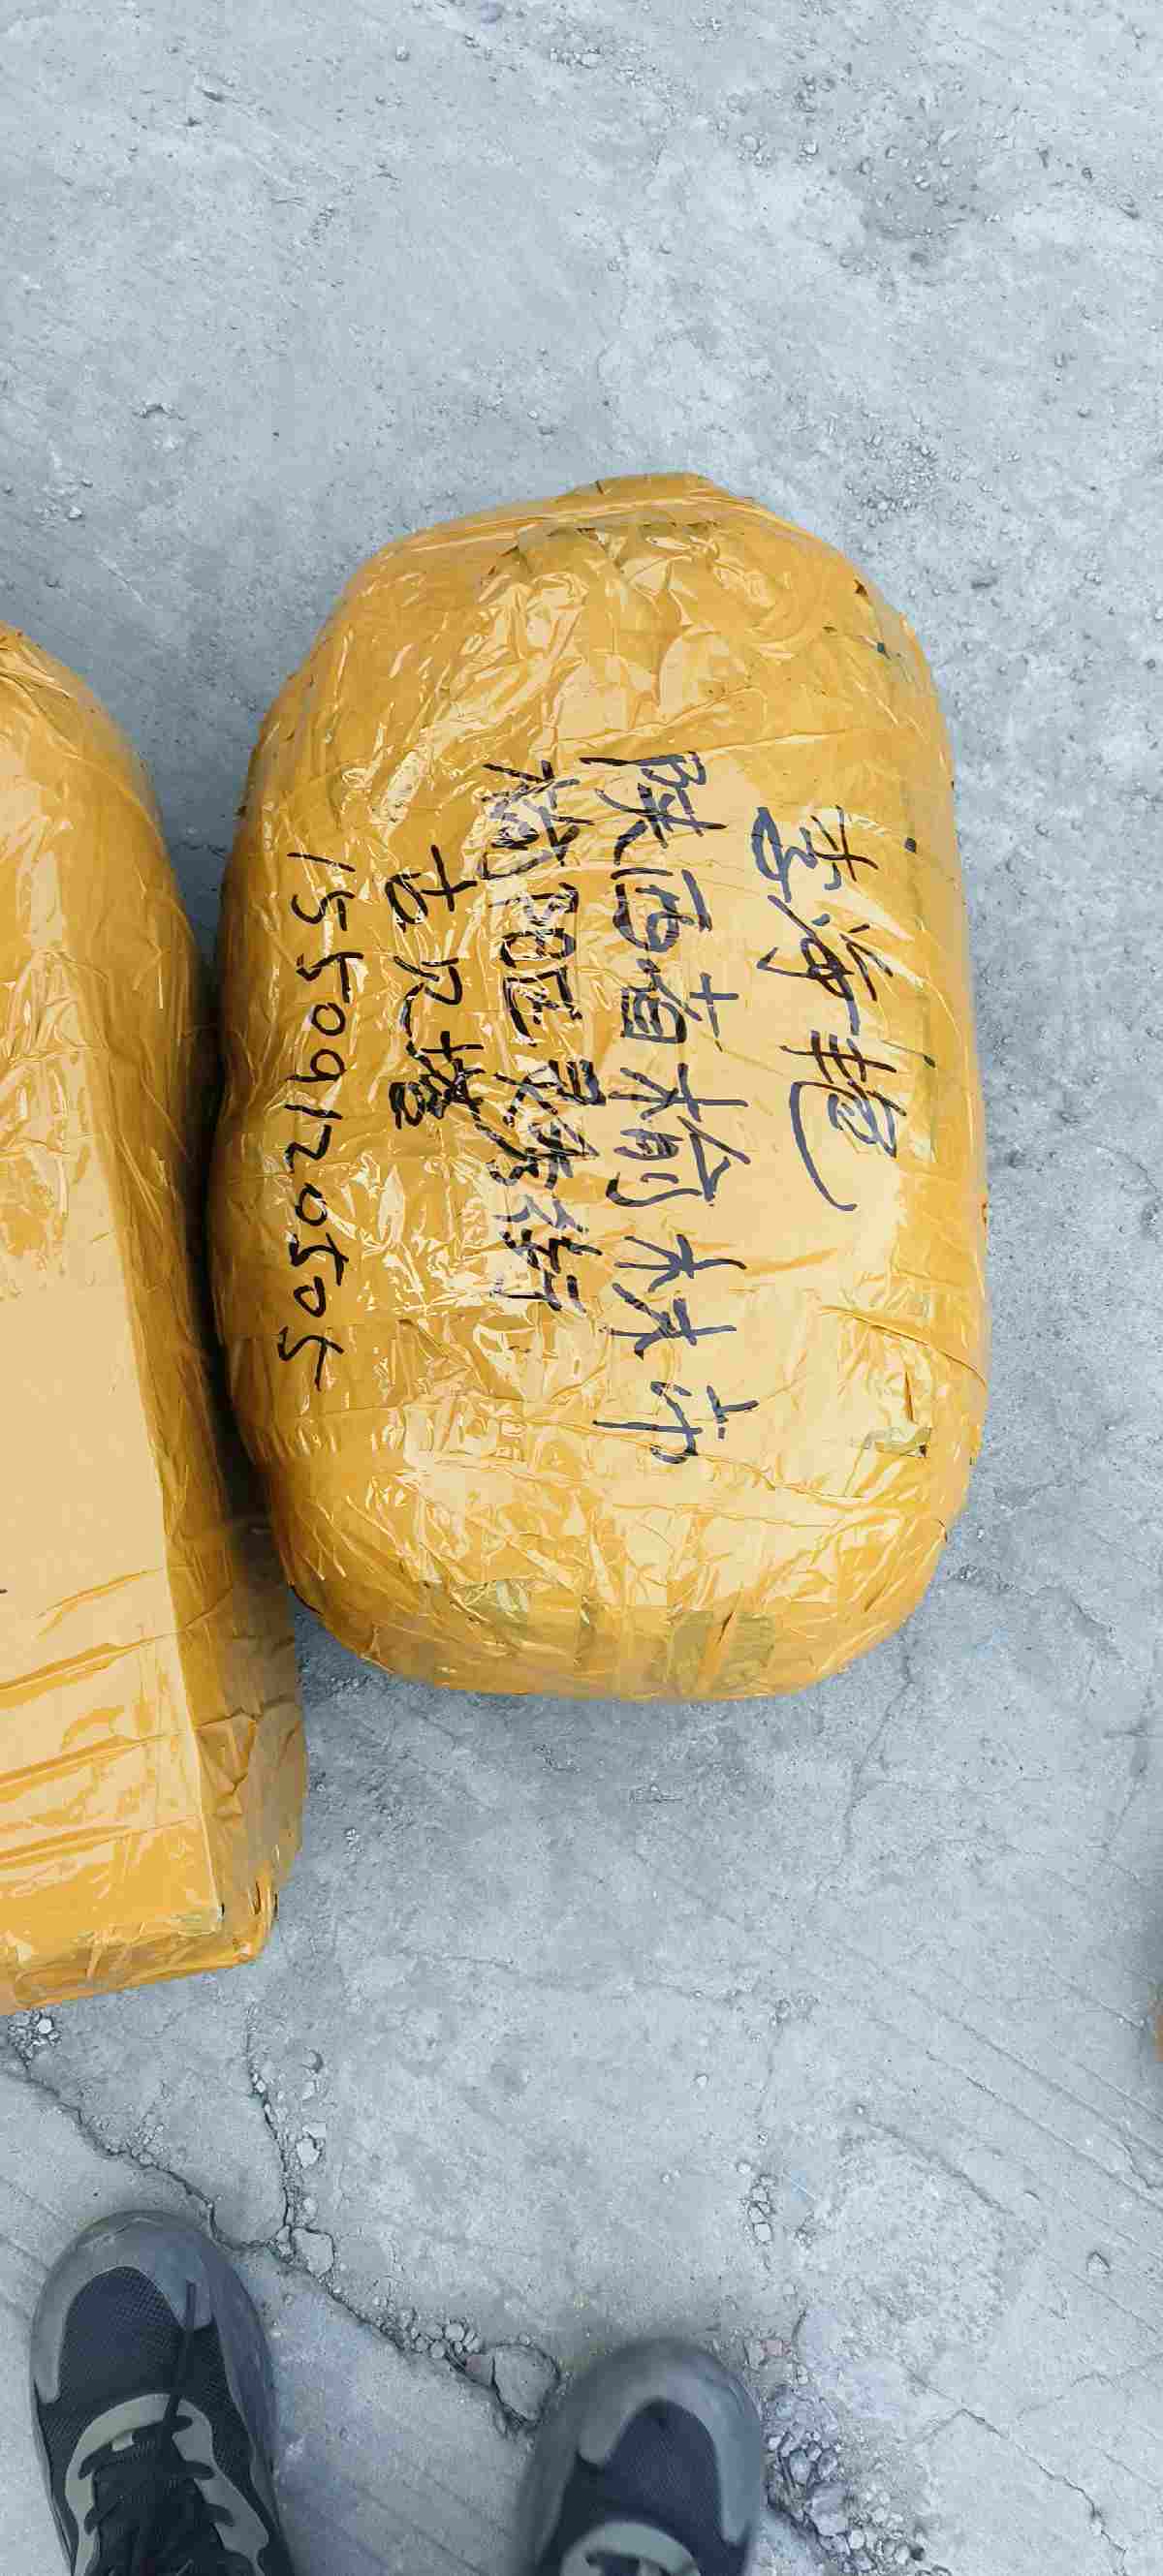 李海艳
陕西省榆林市
榆阳区灵秀街
古尺塔
15509120505